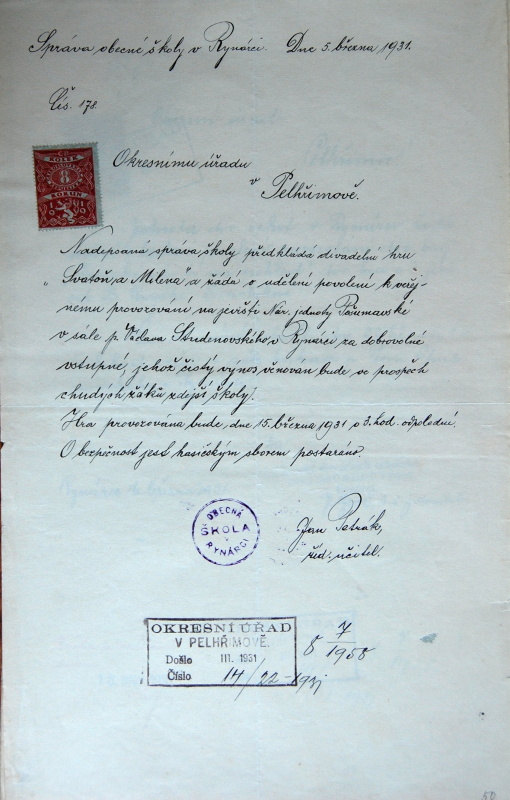 Správa obecné školy v Rynárci. Dne 5. března 1931.
Čís. 178.
KOLEK
8
KORUN
Okresnímu úřadu
v Pelhřimově.
Nadepsaná správa školy předkládá divadelní hru
„Svatoň a Milena" a žádá o udělení povolení k veřej-
nému provozování na jevišti Nár. jednoty Pošumavské
v sále p. Václava Studenovského v Rynárci za dobrovolné
vstupné, jehož čistý výnos věnován bude ve prospěch
chudých žáků zdejší školy.
Hra provozována bude dne 15. března 1931 o 3. hod. odpolední.
O bezpečnost jest hasičským sborem postaráno.
OBECNÁ
ŠKOLA
V
RYNÁRCI
Jan Petrák,
říd. učitel.
OKRESNÍ ÚŘAD
V PELHŘIMOVĚ.
Došlo III. 1931
Číslo 14/22-1931
7
50